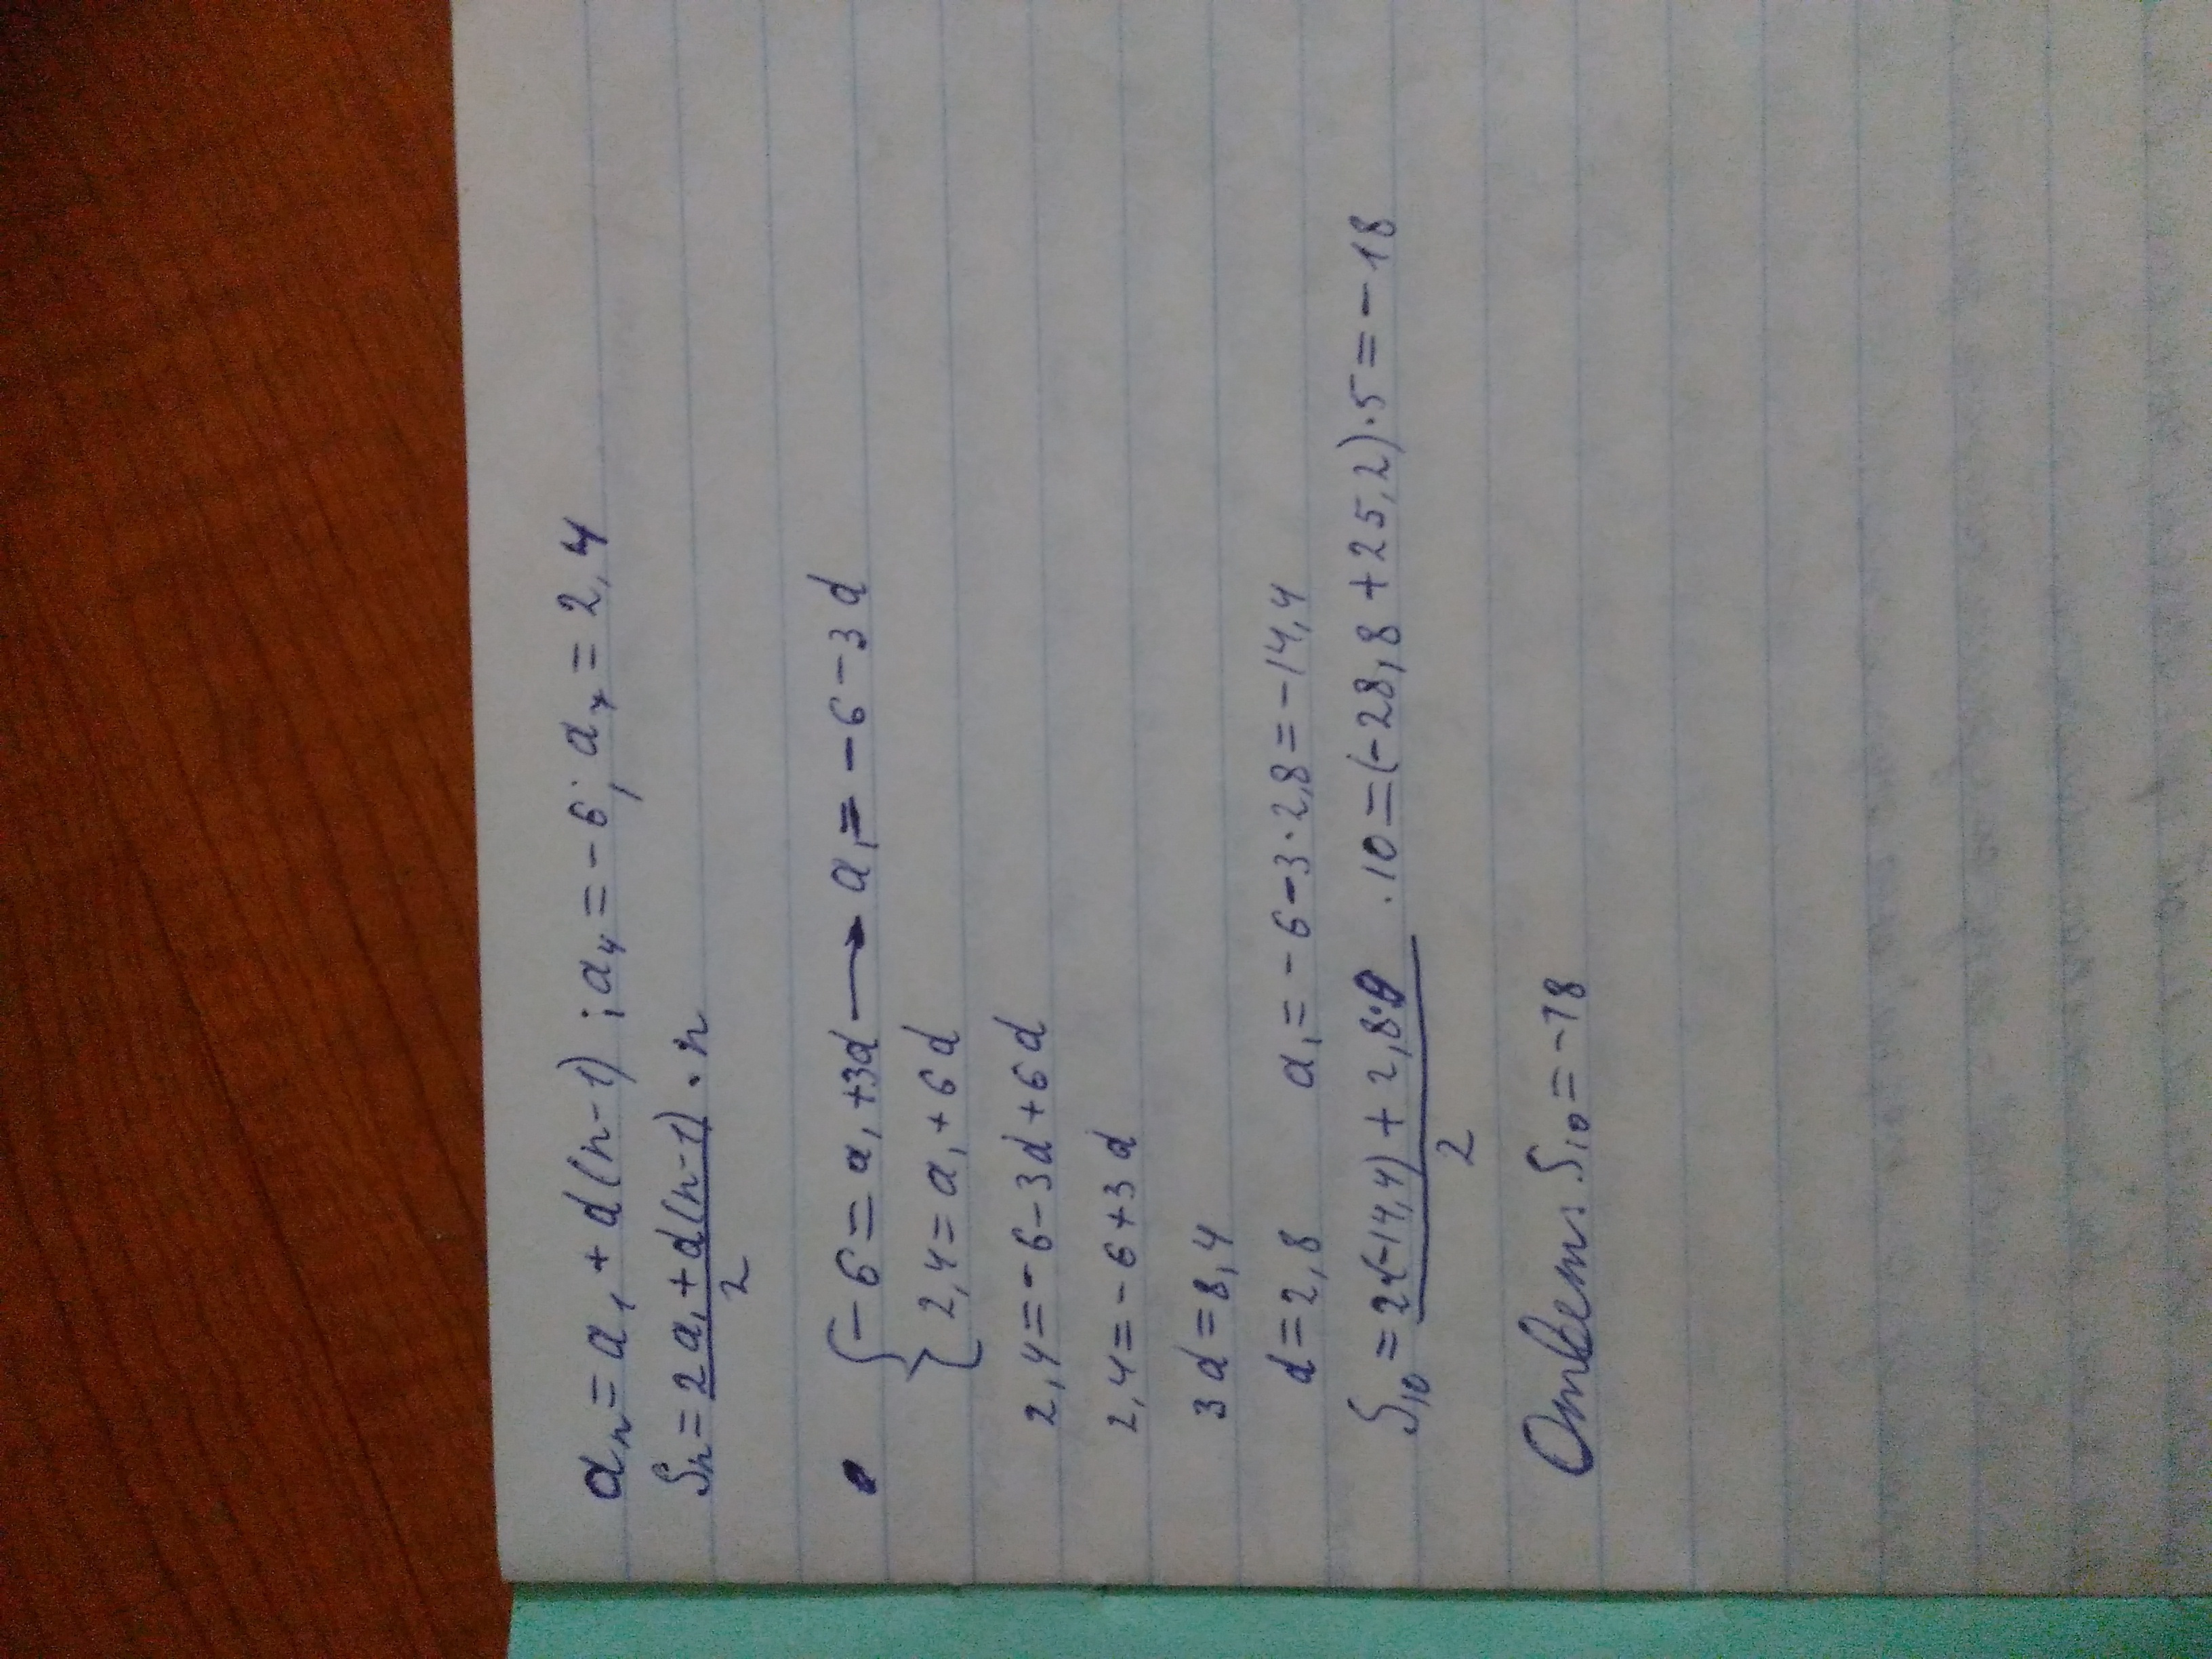 aₙ = a₁ + d(n-1) ; a₄ = -6; a₇ = 2,4
Sₙ = (2a₁ + d(n-1))/2 · n
{ -6 = a₁ + 3d → a₁ = -6 - 3d
2,4 = a₁ + 6d
2,4 = -6 - 3d + 6d
2,4 = -6 + 3d
3d = 8,4
d = 2,8 a₁ = -6 - 3·2,8 = -14,4
S₁₀ = (2·(-14,4) + 2,8·9)/2 · 10 = (-28,8 + 25,2)·5 = -18
Ответ: S₁₀ = -18